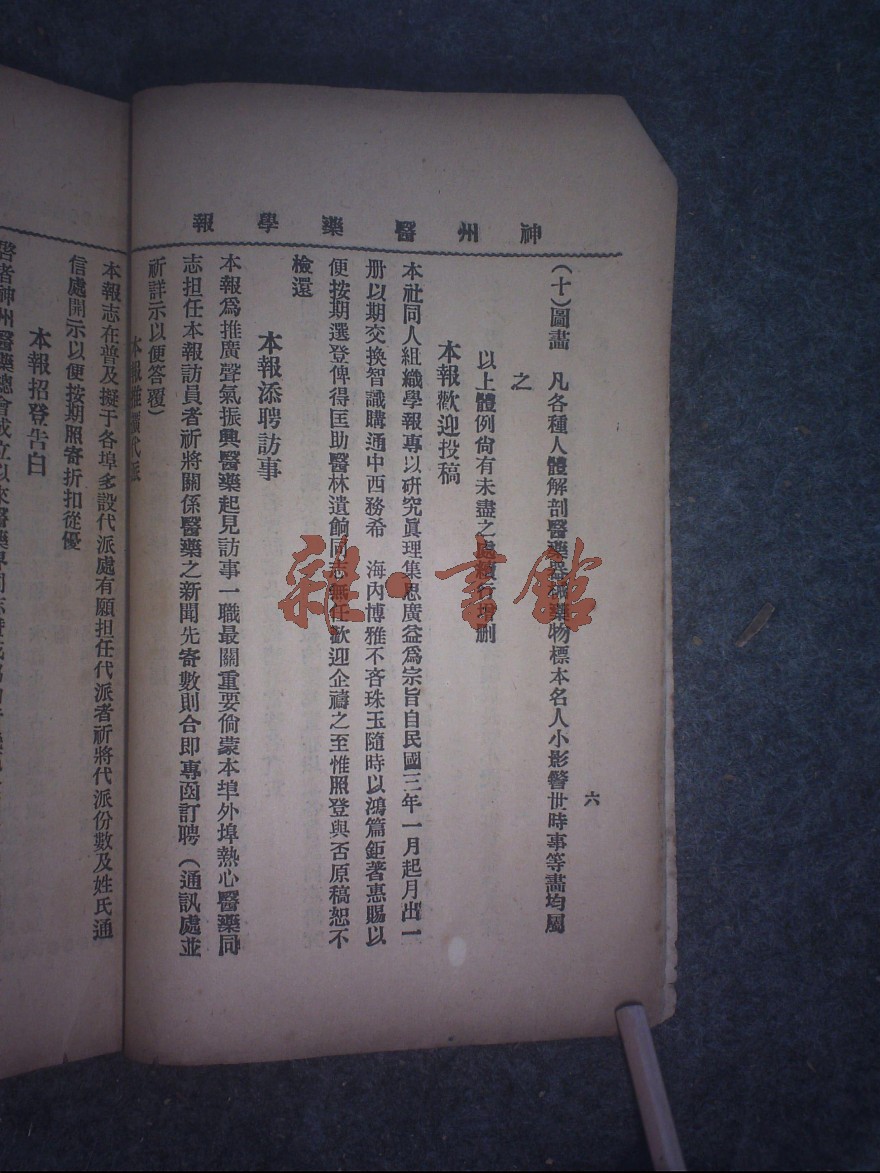 神州醫藥學報
六
(十)圖畫　凡各種人體解剖醫藥器械藥物標本名人小影警世時事等畵均屬
之
以上體例尙有未盡之處續行增刪
本報歡迎投稿
本社同人組織學報專以研究眞理集思廣益爲宗旨自民國三年一月起月出一
册以期交換智識購通中西務希　海內博雅不吝珠玉隨時以鴻篇鉅著惠賜以
便按期選登俾得匡助醫林遺餉同志無任歡迎企禱之至惟照登與否原稿恕不
檢還
本報添聘訪事
本報爲推廣聲氣振興醫藥起見訪事一職最關重要倘蒙本埠外埠熱心醫藥同
志担任本報訪員者祈將關係醫藥之新聞先寄數則合即專函訂聘(通訊處並
祈詳示以便答覆)
本報推廣代派
本報志在普及擬于各埠多設代派處有願担任代派者祈將代派份數及姓氏通
信處開示以便按期照寄折扣從優
本報招登告白
啓者神州醫藥總會成立以來醫藥界同志贊成
雜·書館